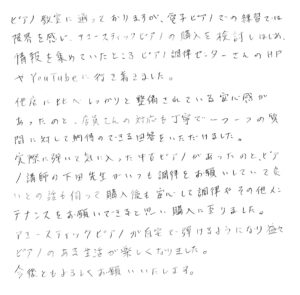 ピアノ教室に通っておりますが、電子ピアノでの練習では
限界を感じ、アコースティックピアノの購入を検討しはじめ、
情報を集めていたところピアノ調律センターさんのHP
やYouTubeに行き着きました。
他店に比べしっかりと整備されている安心感が
あったのと、店員さんの対応も丁寧で一つ一つの質
問に対して納得のできる回答をいただけました。
実際に弾いて気に入ったするピアノがあったのと、ピア
ノ講師の下田先生がいつも調律をお願いしていて良
いとの話も伺って購入後も安心して調律やその他メン
テナンスをお願いできると思い購入に至りました。
アコースティックピアノが自宅で弾けるようになり益々
ピアノのある生活が楽しくなりました。
今後ともよろしくお願いいたします。